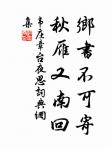 鄉書不可寄
秋雁又南回
韦庄章台夜思詞典網
集